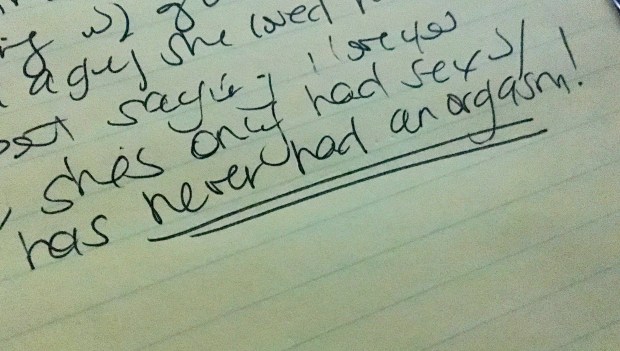 ng w) g
a guy she loved
ost saying I love you
she's only had sex w/
has never had an orgasm!